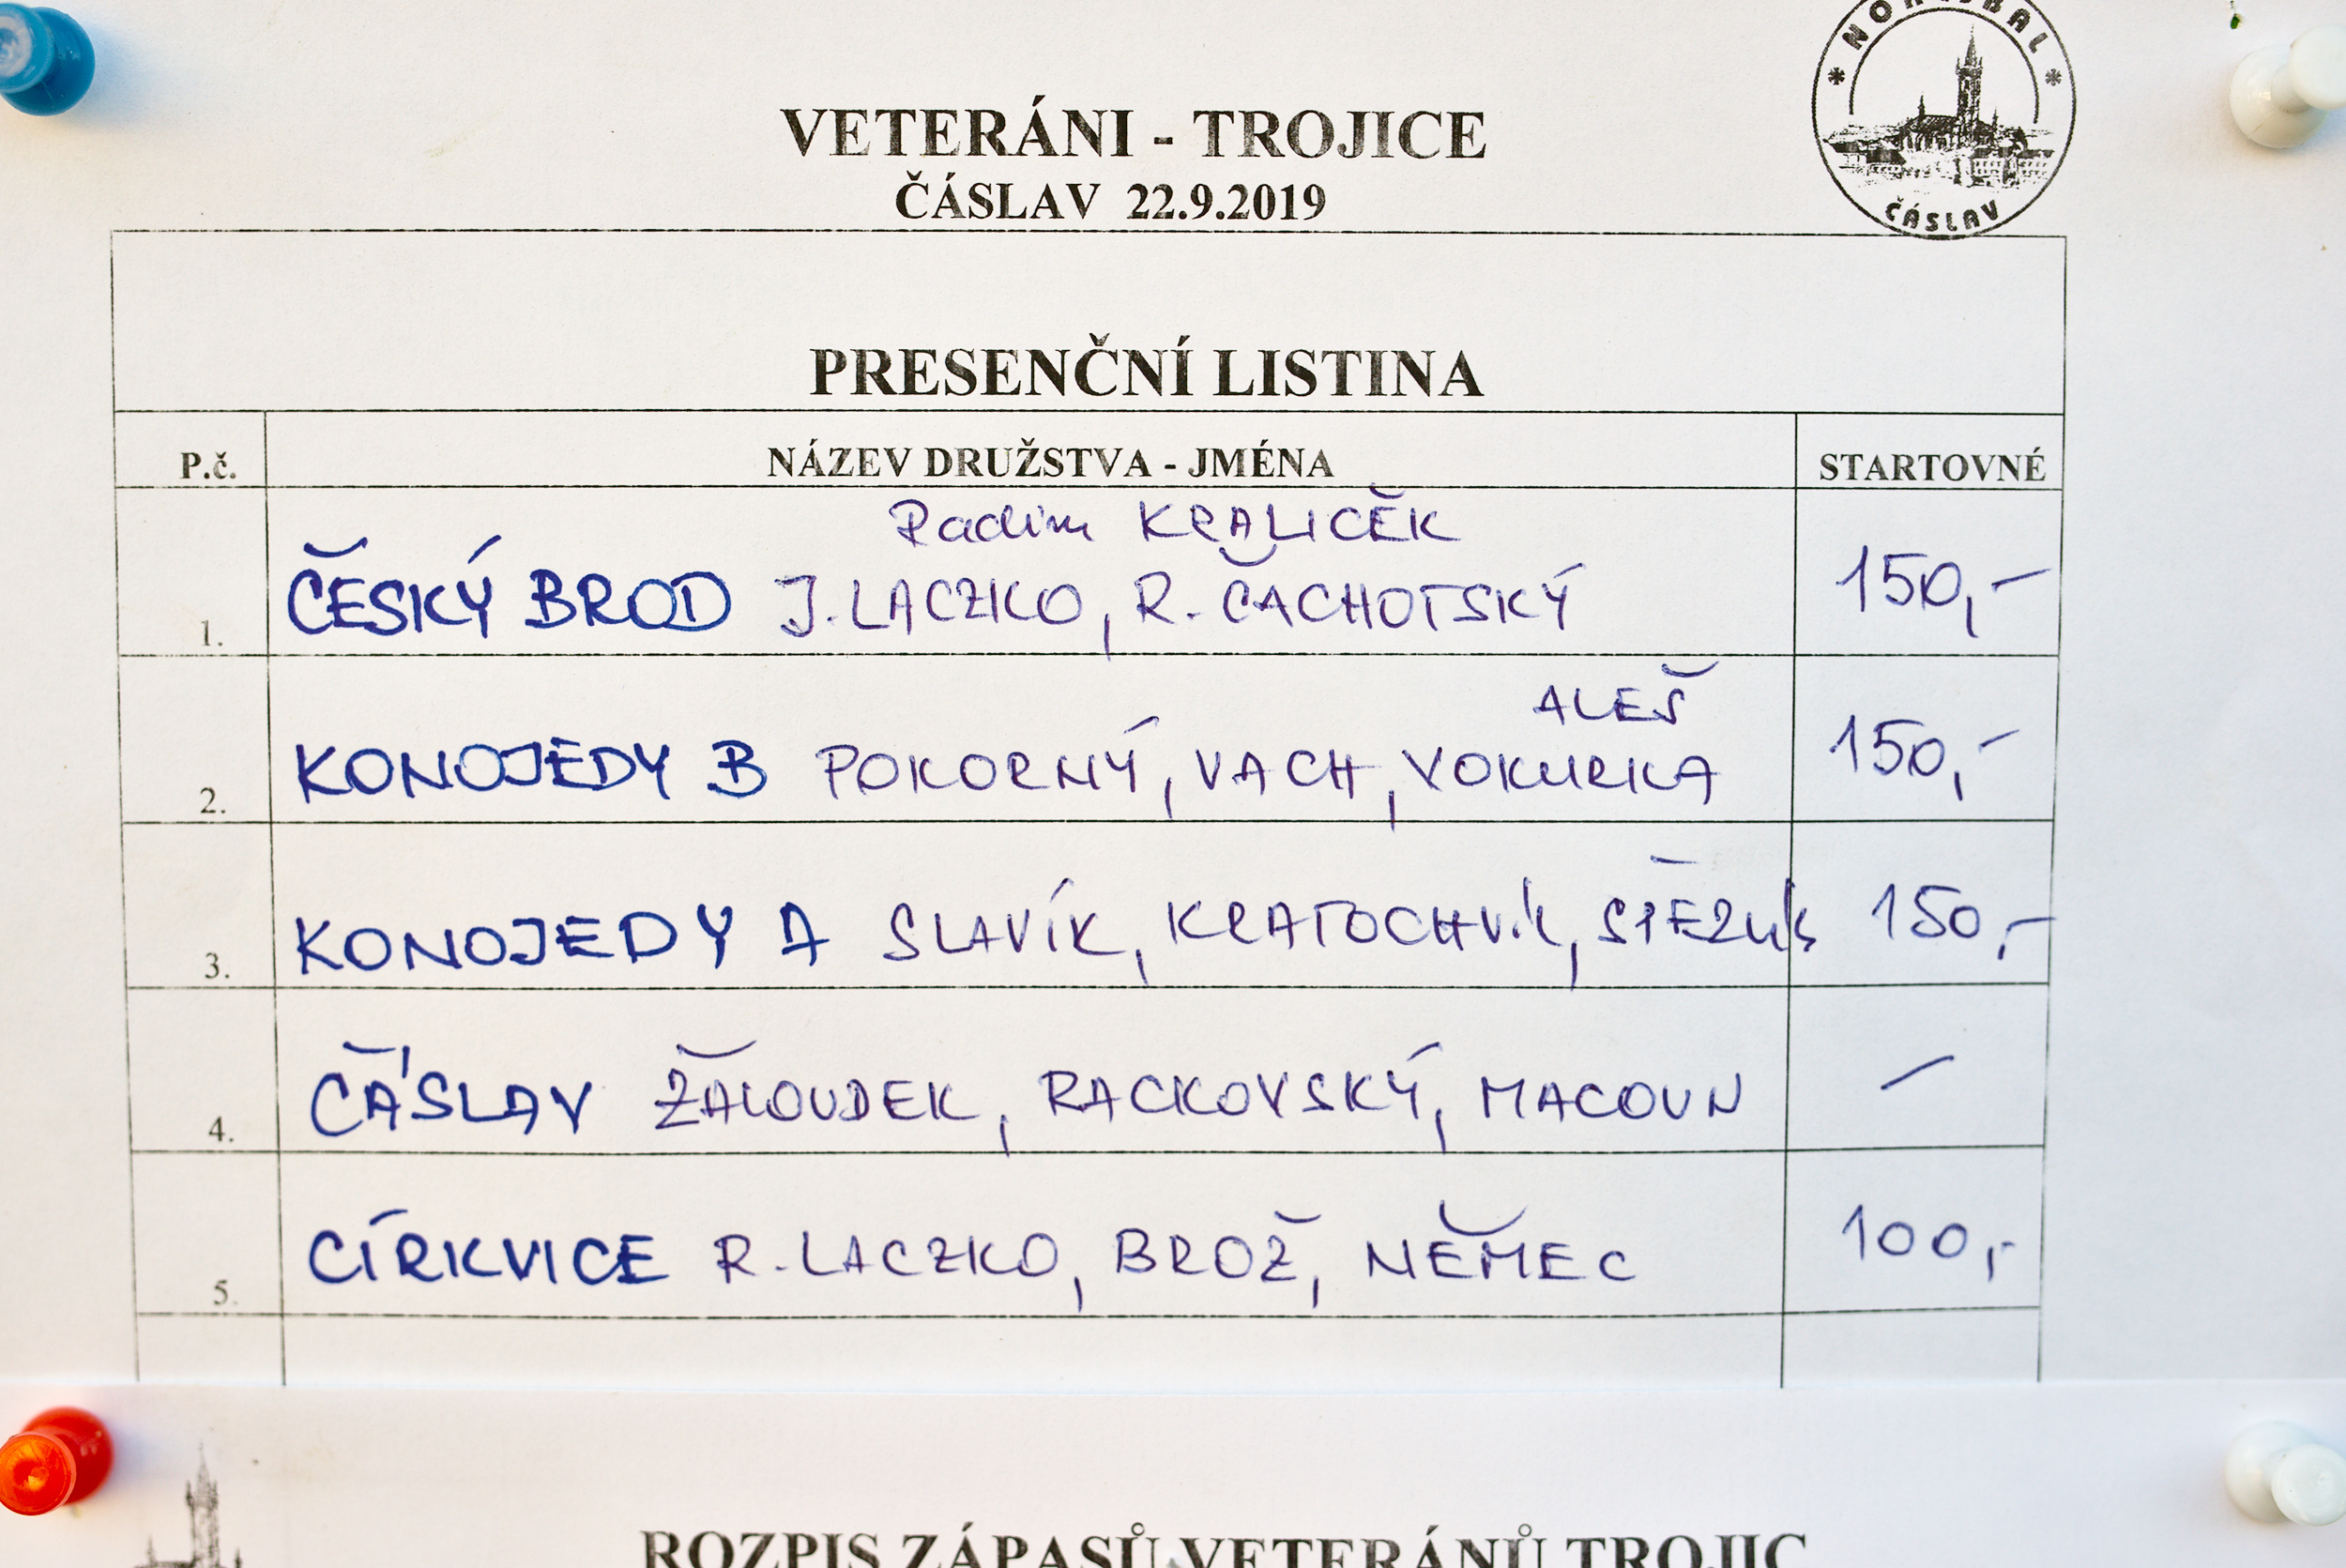 VETERÁNI - TROJICE
ČÁSLAV 22.9.2019
ČÁSLAV
PRESENČNÍ LISTINA
P.č. NÁZEV DRUŽSTVA - JMÉNA STARTOVNÉ
Radim KRALIČEK
1. ČESKÝ BROD J. LACZKO, R. ČACHOTSKÝ 150,-
ALEŠ
2. KONOJEDY B POKORNÝ, VACH, VOKURKA 150,-
3. KONOJEDY A SLAVÍK, KRATOCHVíl, 150,-
4. ČÁSLAV ŽALOUDEK, RACKOVSKÝ, MACOUN -
5. CÍRKVICE R. LACZKO, BROŽ, NĚMEC 100,-
ROZPIS ZÁPASŮ VETERÁNŮ TROJIC